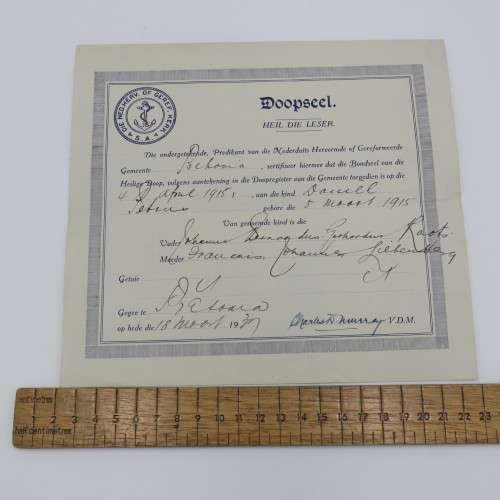 DIE NED. HERV. OF GEREF. KERK
S.A.
Doopseel.
HEIL DIE LESER.
Die ondergetekende, Predikant van die Nederduits Hervormde of Gereformeerde
Gemeente Pretoria, sertifiseer hiermee dat die Bondseel van die
Heilige Doop, volgens aantekening in die Doopregister aan die Gemeente toegedien is op die
4 April 1915, aan die kind Daniel
Petrus gebore die 5 Maart 1915
Van genoemde kind is die
Vader Johannes Gerhardus
Moeder Johannes Liebenberg
Getuie
Gegee te Pretoria
op hede die 18 Maart 1937 Charles D Murray V.D.M.
centimetres
1 2 3 4 5 6 7 8 9 10 11 12 13 14 15 16 17 18 19 20 21 22 23
half centimetres